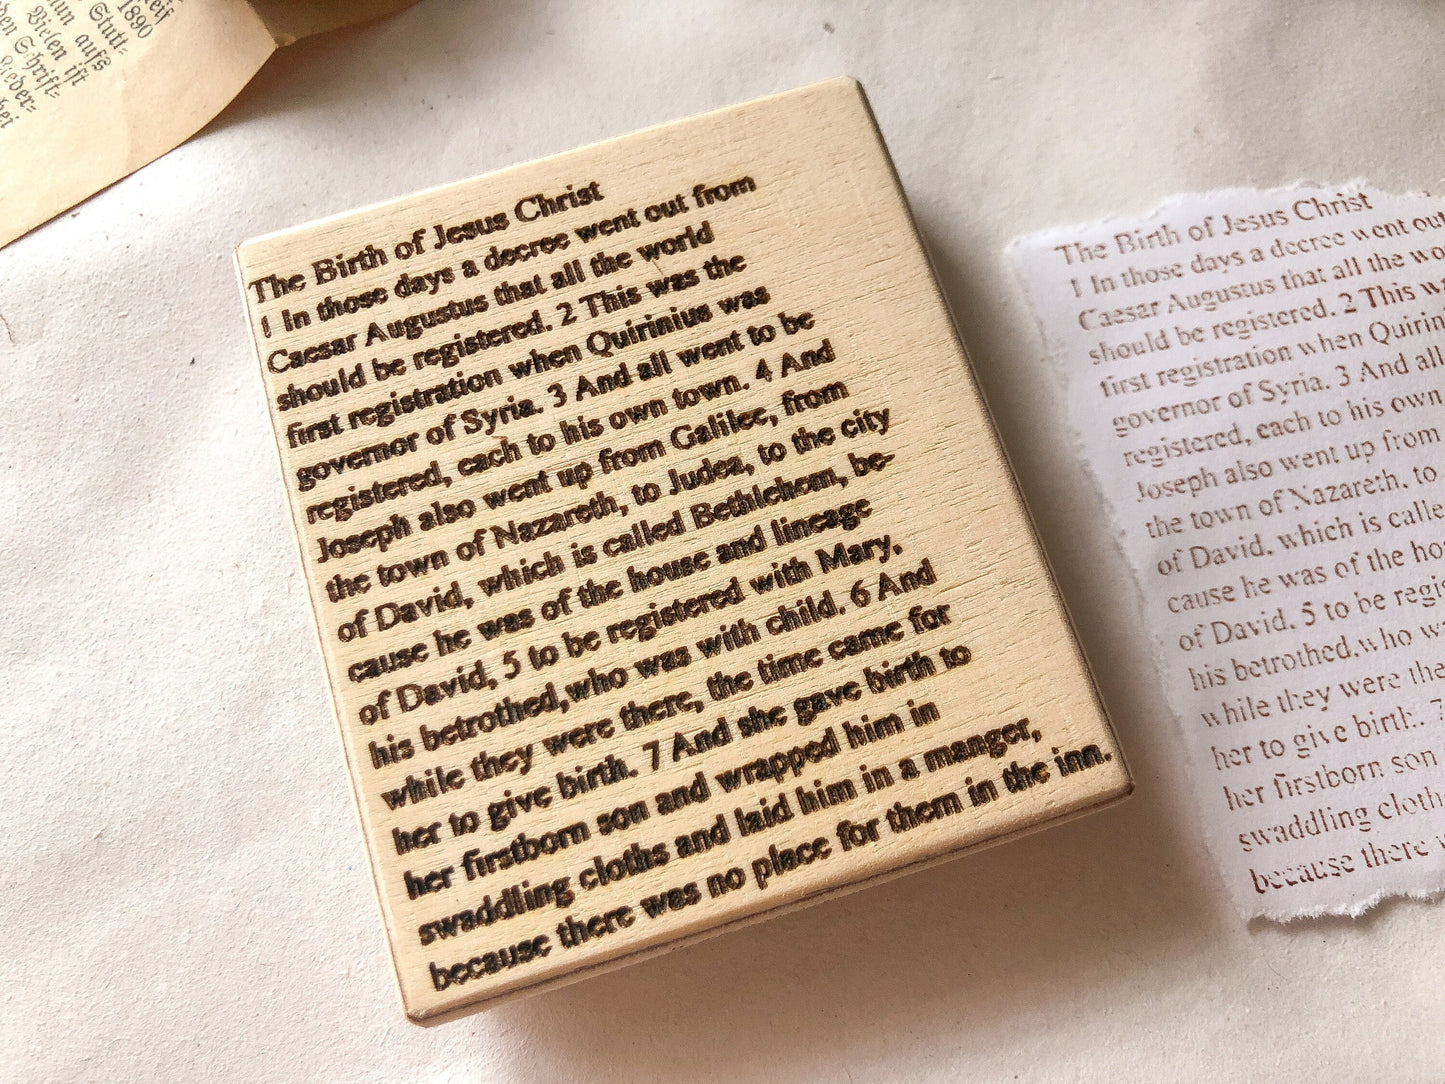 reif
1890
Stutt=
nun aufs
Vielen ist
den Schrift=
Wieder=
bei
The Birth of Jesus Christ
1 In those days a decree went out from
Caesar Augustus that all the world
should be registered. 2 This was the
first registration when Quirinius was
governor of Syria. 3 And all went to be
registered, each to his own town. 4 And
Joseph also went up from Galilee, from
the town of Nazareth, to Judea, to the city
of David, which is called Bethlehem, be-
cause he was of the house and lineage
of David, 5 to be registered with Mary,
his betrothed,who was with child. 6 And
while they were there, the time came for
her to give birth. 7 And she gave birth to
her firstborn son and wrapped him in
swaddling cloths and laid him in a manger,
because there was no place for them in the inn.
The Birth of Jesus Christ
1 In those days a decree went out
Caesar Augustus that all the wo
should be registered. 2 This wa
first registration when Quirin
governor of Syria. 3 And all
registered, each to his own
Joseph also went up from
the town of Nazareth, to
of David, which is calle
cause he was of the ho
of David, 5 to be regi
his betrothed,who w
while they were the
her to give birth. 7
her firstborn son
swaddling cloth
because there